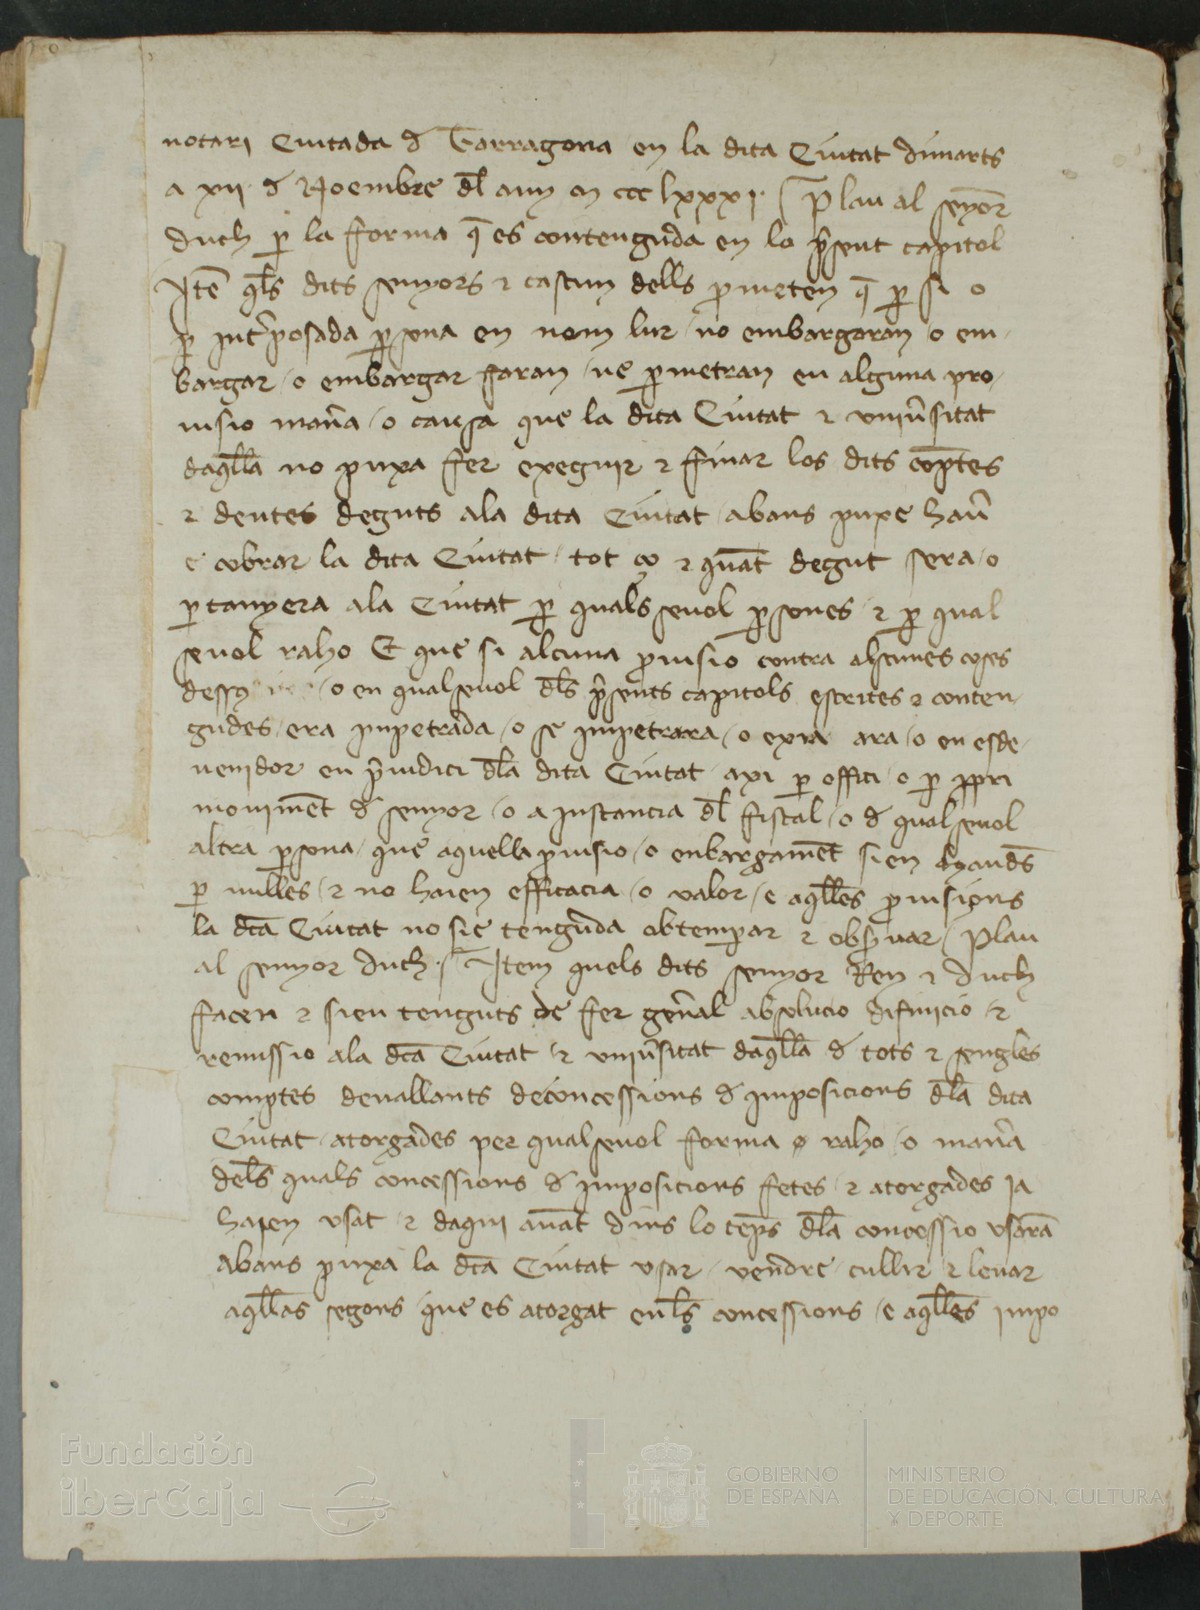 notari Ciutada d̄ Tarragona en la dita Ciutat dimarts
a xii· d̄ Noembre dl̄ any m ccc lxxxi· Plau al senyor
duch p̱ la forma q̄ es contenguda en lo p̄sent capitol
Itē q̄ls dits senyors ⁊ cascun dells p̱meten q̄ p̱ si o
p̱ int̄posada p̱sona en nom lur / no embargaran / o em
bargar / o embargar faran / ne p̱metran en alguna pro
uisio man̄a / o causa que la dita Ciutat ⁊ uniūsitat
daql̄la no puxa fer exeguir ⁊ finar los dits cop̄tes
⁊ deutes deguts ala dita Ciutat / abans puxe hau̅
e cobrar la dita Ciutat / tot ço ⁊ quāt degut sera / o
p̱tanyera ala Ciutat p̱ quals seuol p̱sones / ⁊ p̱ qual
seuol raho Et que si alcuna p̱uisio contra alscunes coses
/ o en qualseuol dl̄s p̄sents capitols escrites ⁊ conten
gudes / era impetrada / o se impetrara / o exira ara / o en esde
uenidor en p̄iudici dl̄a dita Ciutat / axi p̱ offici / o p̱ p̱pri
mouimēt d̄ senyor / o a instancia dl̄ fiscal / o d̄ qualseuol
altra p̱sona / que aquella p̱uisio / o enbargamēt sien
p̱ nulles / ⁊ no haien efficacia / o valor / e aql̄les p̱uisions
la dc̄a Ciutat no sie tenguda obtemp̱ar ⁊ obs̱uar / Plau
al senyor duch· / Item quels dits senyor Rey ⁊ duch
facen ⁊ sien tenguts de fer gen̄al absolucio difinicio / ⁊
remissio ala dc̄a Ciutat / ⁊ uniūsitat daql̄la d̄ tots ⁊ sengles
comptes deuallants deconcessions d̄ imposicions dl̄a dita
Ciutat / atorgades per qualseuol forma o raho / o man̄a
dels quals concessions d̄ imposicions fetes / ⁊ atorgades ia
haien vsat / ⁊ daqui auāt dins lo tēps dl̄a concessio vsarā
Abans puxa la dc̄a Ciutat vsar / vendre / cullir ⁊ leuar
aql̄las segons que es atorgat enl̄s concessions / e aql̄les impo
Fundación
iberCaja
GOBIERNO
DE ESPAÑA
MINISTERIO
DE EDUCACIÓN, CULTURA
Y DEPORTE